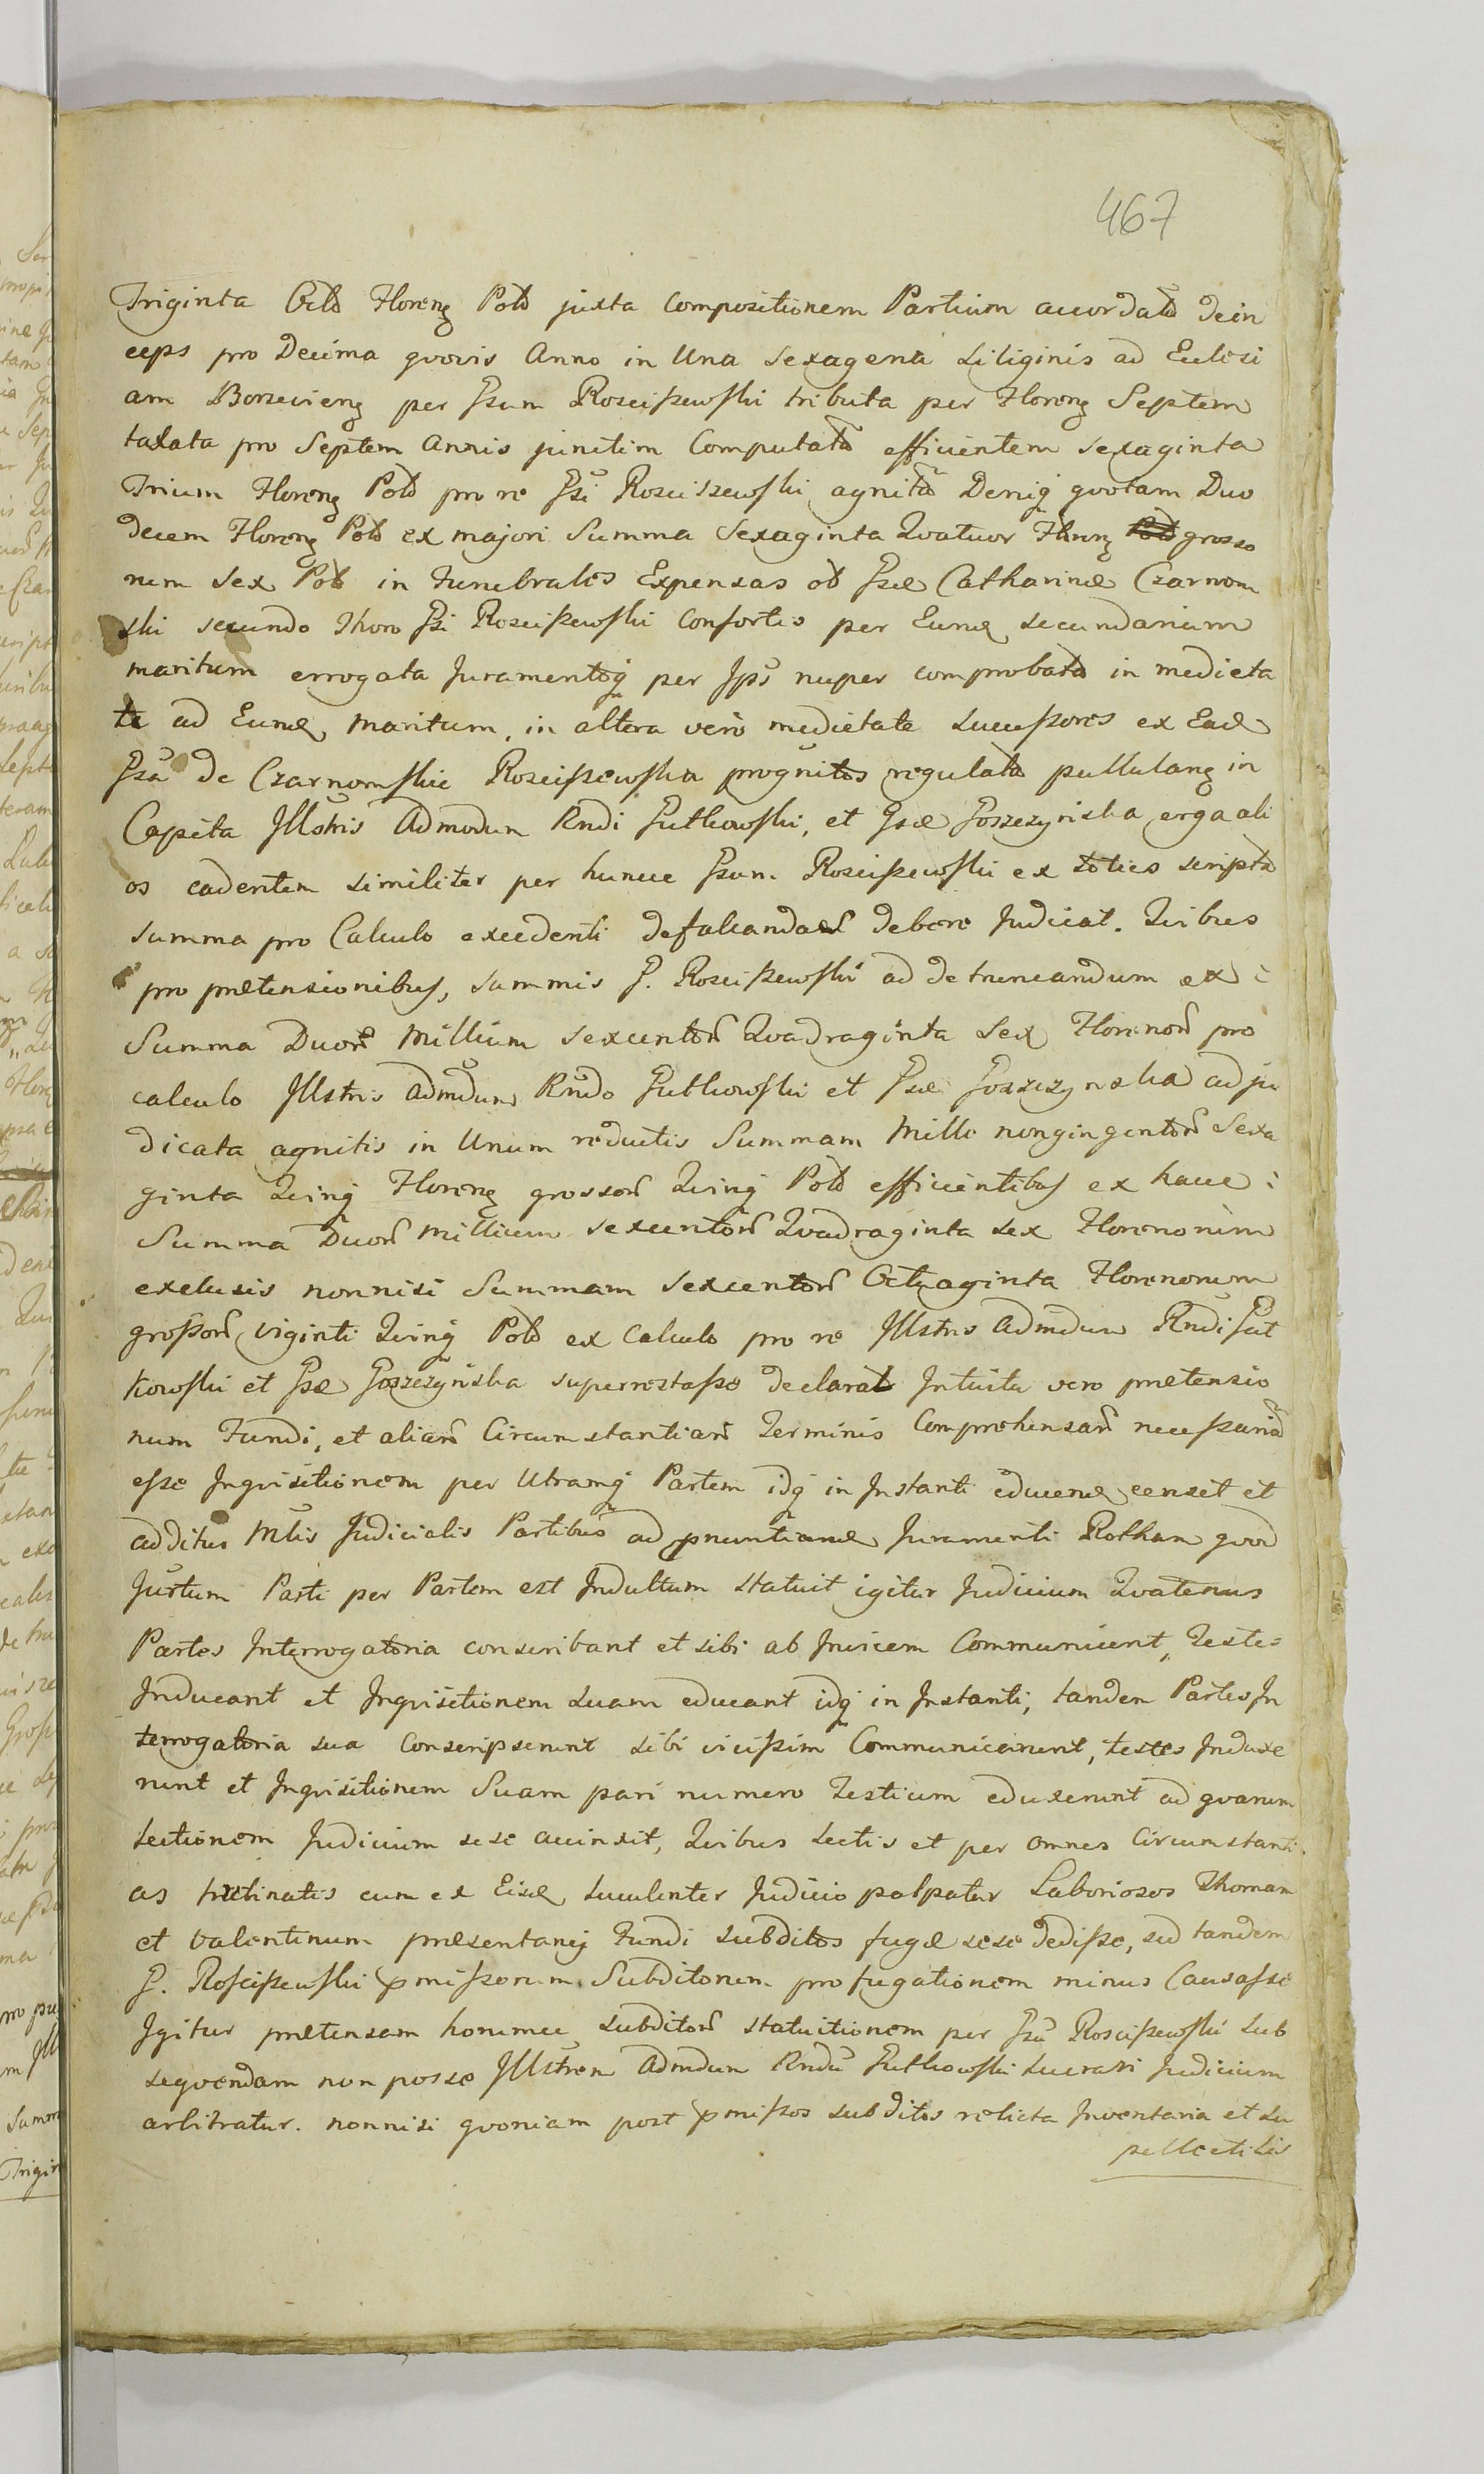 467
Triginta Octo Floreng Pold juxta Compositionem Partium accordato dein
ceps pro Decima qvovis Anno in Una Sexagena Siliginis ad Eclesi
am Borzevieng per Gsum Rosciszewski tributa per Floreng Septem
taxata pro Septem Annis junctim Computato efficientem Sexaginta
Trium Floreng Pold pro re Gsi Rosciszewski agnita Deniq qvotam Duo
decem Floreng Pold ex majori Summa Sexaginta Qvatuor Floreng Pold grosso
rum Sex Pold in Funebrales Expensas ob Gsæ Catharinæ Czarnom
ski secundo Thoro Gsi Rosciszewski Consortis per Eund secundarium
maritum errogata Juramentoq per Ips nuper comprobata in medieta
te ad Eund maritum, in altera vero medietate Successores ex Ead
Gsa de Czarnomskie Rosciszewska prognitos regulato pullulang in
Capita Jllstris Admodum Rndi Gutkowski, et Gsæ Goszczynska erga ali
os cadentem similiter per huncce Gsum Rosciszewski ex toties scripta
summa pro Calculo excedenti defalcandas debere Judicat. Qvibus
pro prætensionibus, summis G. Rosciszewski ad detruncandum ex
Summa Duor Millium sexcentor Qvadraginta Sex Florenor pro
calculo Jllstris admdum Rndo Gutkowski et Gsæ Goszczynska adju
dicata agnitis in Unum reductis Summam Mille nongingentor Sexa
ginta Qvinq Floreng grossor Qvinq Pold efficientibus ex hacce
Summa Duor Millium sexcentor Qvadraginta sex Florenorum
exclusis nonnisi Summam sexcentor Octuaginta Florenorum
grossor viginti Qvinq Pold ex Calculo pro re Jllstris Admdum Rndi Gut
kowski et Gsæ Goszczynska superrestasse declarat Intuitu vero prætensio
num Fundi, et aliar Circumstantiar Terminis Comprehensar necessaria
esse Inqvisitionem per Utramq Partem idq in Instanti educend censet et
additus Mtis Judicialis Partibus ad pnuntiand Juramenti Rotham qvod
Jurtum Parti per Partem est Indultum statuit igitur Judicium Qvatenus
Partes Interrogatoria conscribant et sibi ab Invicem Communicent, Testes
Inducant et Inqvisitionem suam educant idq in Instanti, tandem Partes In
terrogatoria sua Conscripserunt sibi vicissim Communicarunt, testes Induxe
runt et Inqvisitionem Suam pari numero Testium eduxerunt ad qvarum
Lectionem Judicium sese accinxit, Qvibus Lectis et per omnes Circumstanti
as trutinatis cum ex Eisd Luculenter Judicio palpatur Laboriosos Thomam
et Valentinum præsentanej Fundi subditos fugæ sese dedisse, sed tandem
G. Rosciszewski pmissorum Subditorum profugationem minus Causasse
Igitur prætensam horumce Subditor statuitionem per Gsu Rosciszewski sub
seqvendam non posse Jllstrem Admdum Rndu Gutkowski Lucrari Judicium
arbitratur. nonnisi qvoniam post pmissos subditos relicta Inventaria et Su
pellectilis